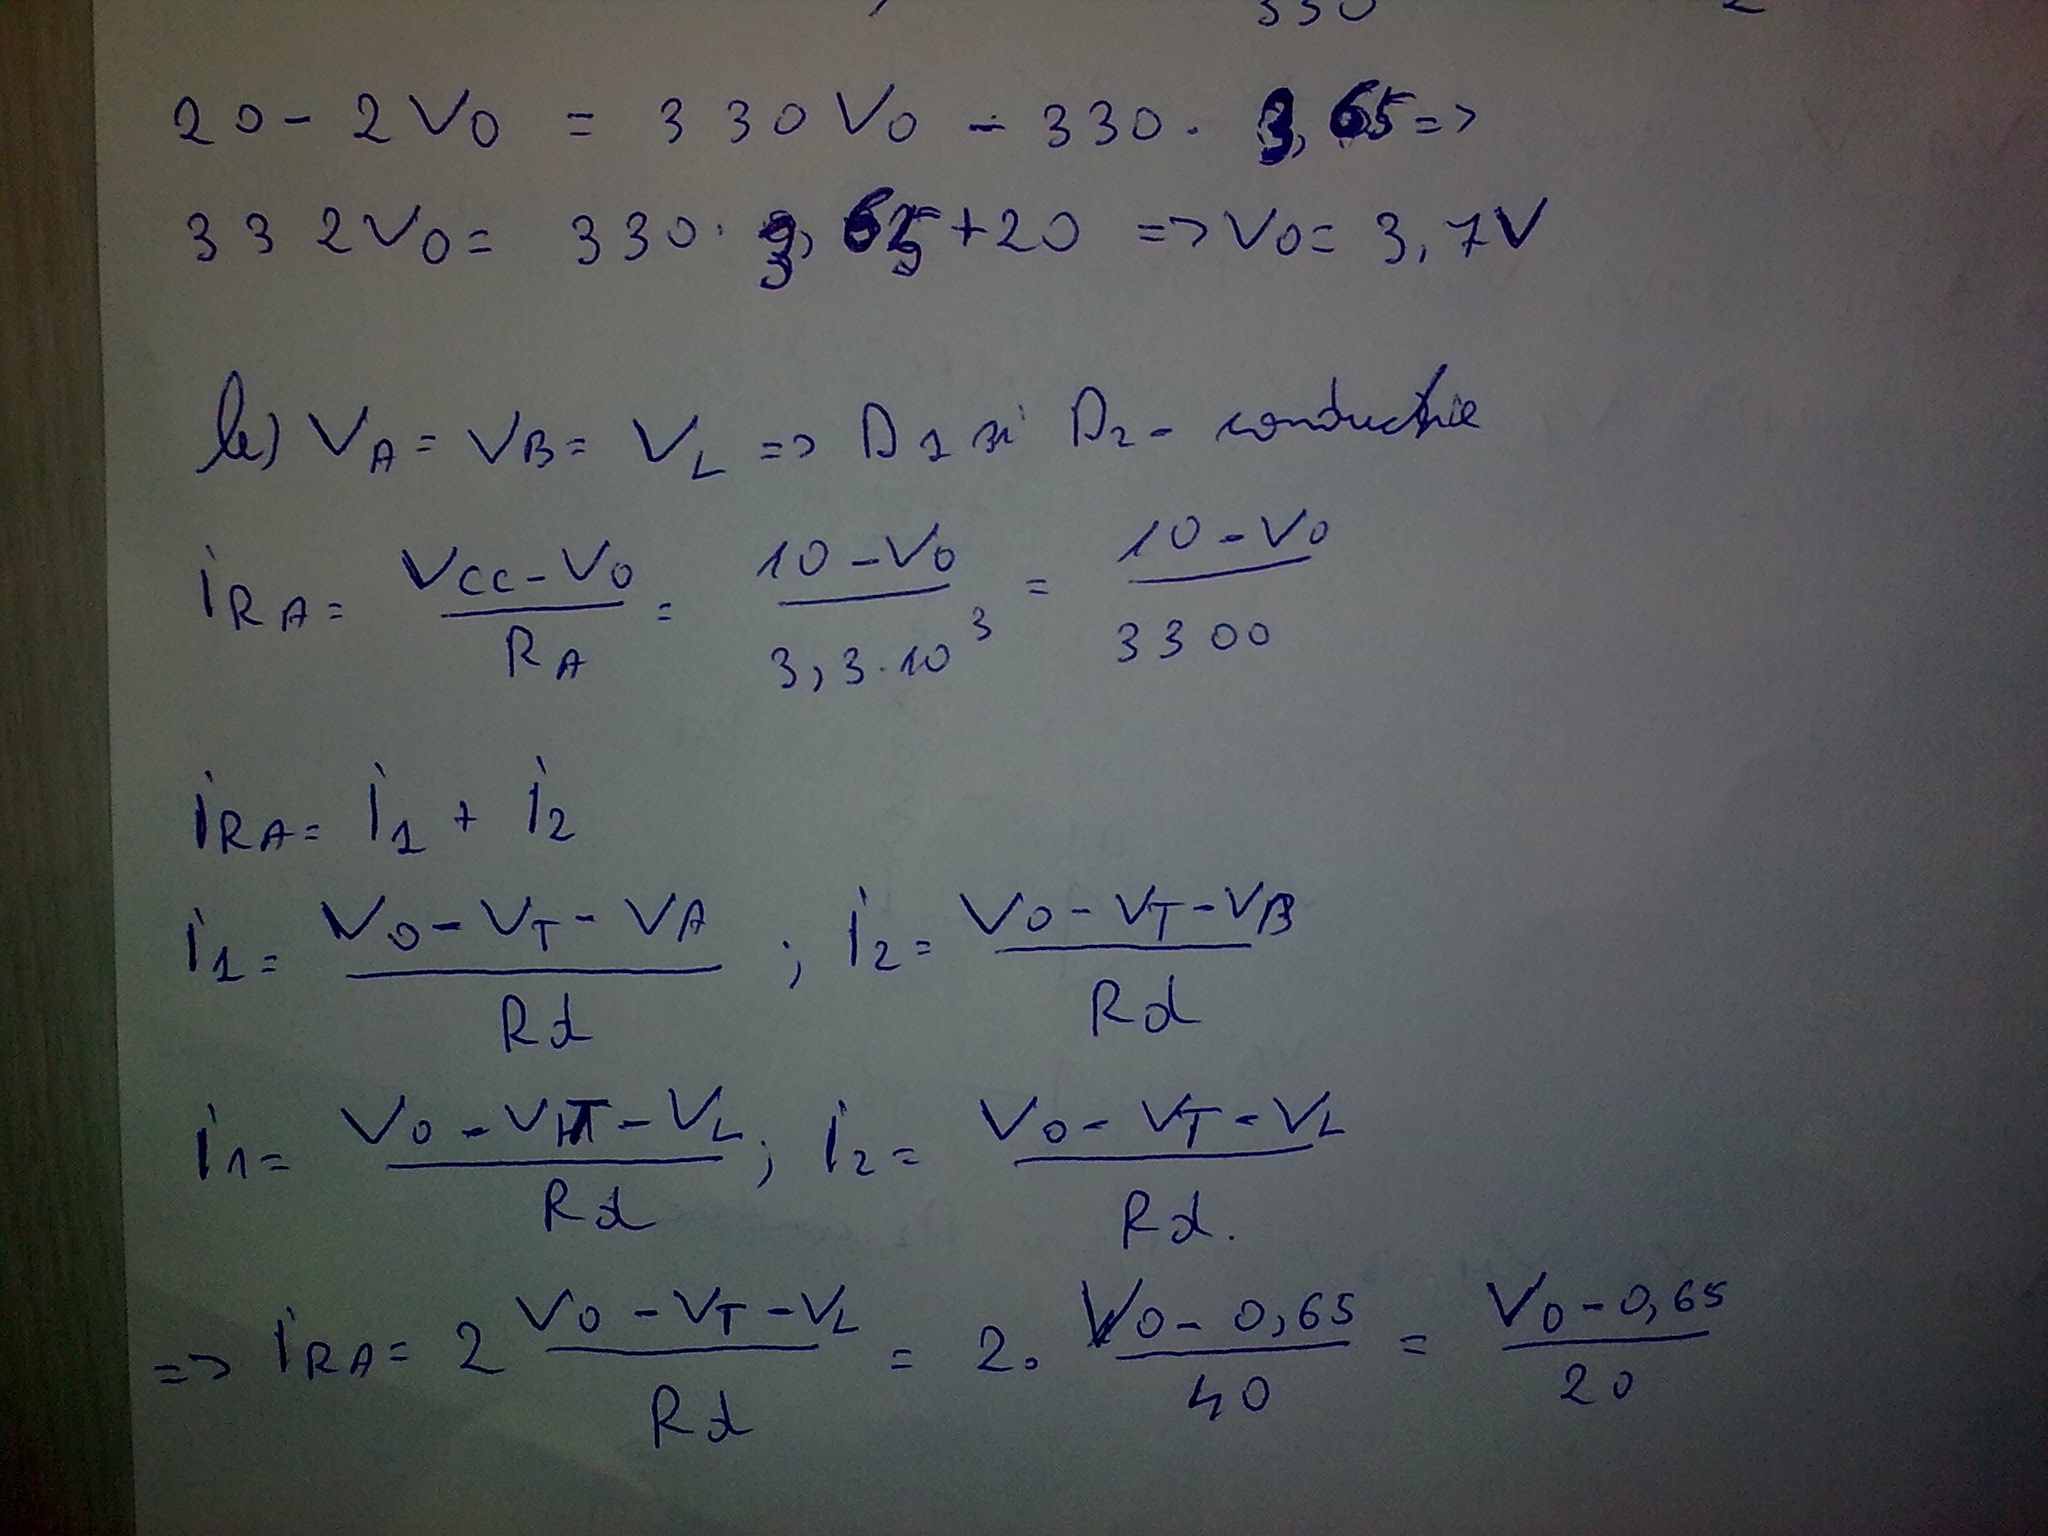 330 2
20 - 2V0 = 330V0 - 330 . 3,65 =>
332V0 = 330 . 3,65 + 20 => V0 = 3,7V
b) VA = VB = VL => D1 si D2 - conductie
iRA = VCC - V0 / RA = 10 - V0 / 3,3 . 10^3 = 10 - V0 / 3300
iRA = i1 + i2
i1 = V0 - VT - VA / Rd ; i2 = V0 - VT - VB / Rd
i1 = V0 - VT - VL / Rd ; i2 = V0 - VT - VL / Rd.
=> iRA = 2 V0 - VT - VL / Rd = 2 . V0 - 0,65 / 40 = V0 - 0,65 / 20